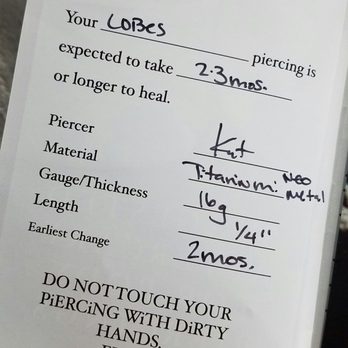 Your LOBES piercing is
expected to take 2-3mos.
or longer to heal.
Piercer Kat
Material Titanium: Neo Metal
Gauge/Thickness 16g
Length 1/4"
Earliest Change 2mos.
DO NOT TOUCH YOUR
PiERCiNG WiTH DiRTY
HANDS.